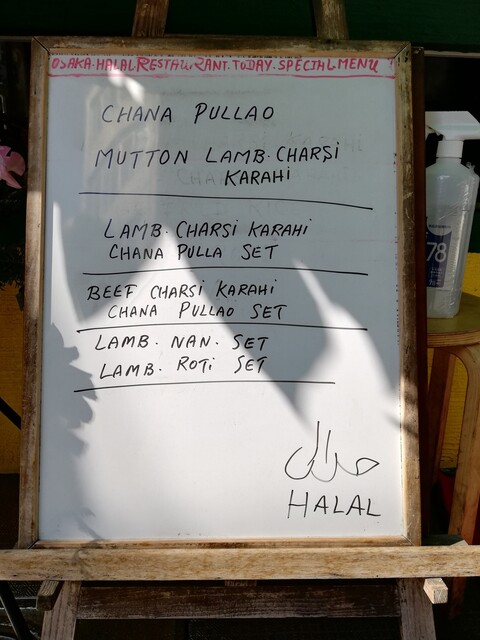 OSAKA.HALAL RESTAURANT.TODAY.SPECIAL MENU
CHANA PULLAO
MUTTON LAMB.CHARSI
KARAHI
LAMB.CHARSI KARAHI
CHANA PULLA SET
BEEF CHARSI KARAHI
CHANA PULLAO SET
LAMB.NAN.SET
LAMB.ROTI SET
حلال
HALAL
78